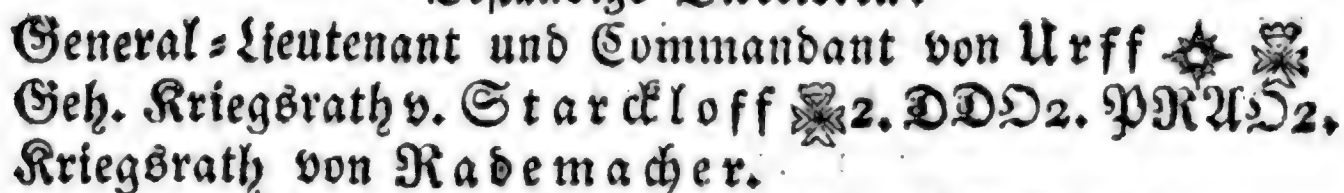 General-Lieutenant und Commandant von Urff
Geh. Kriegsrath v. Starckloff 2. DDO2. PRAO2.
Kriegsrath von Rademacher.